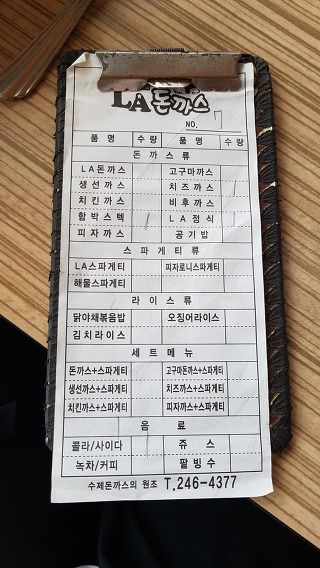 LA돈까스
NO. 7
품 명 수 량 품 명 수 량
돈 까 스 류
LA돈까스 고구마까스
생선까스 치즈까스
치킨까스 비후까스
함박스텍 LA정식
피자까스 공기밥
스 파 게 티 류
LA스파게티 피자로니스파게티
해물스파게티
라 이 스 류
닭야채볶음밥 오징어라이스
김치라이스
세 트 메 뉴
돈까스+스파게티 고구마돈까스+스파게티
생선까스+스파게티 치즈까스+스파게티
치킨까스+스파게티 피자까스+스파게티
음 료
콜라/사이다 쥬 스
녹차/커피 팥빙수
수제돈까스의 원조 T.246-4377